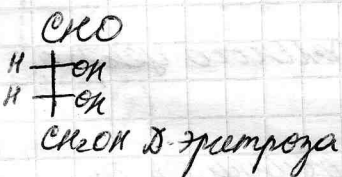 CHO
H OH
H OH
CH₂OH D-эритроза